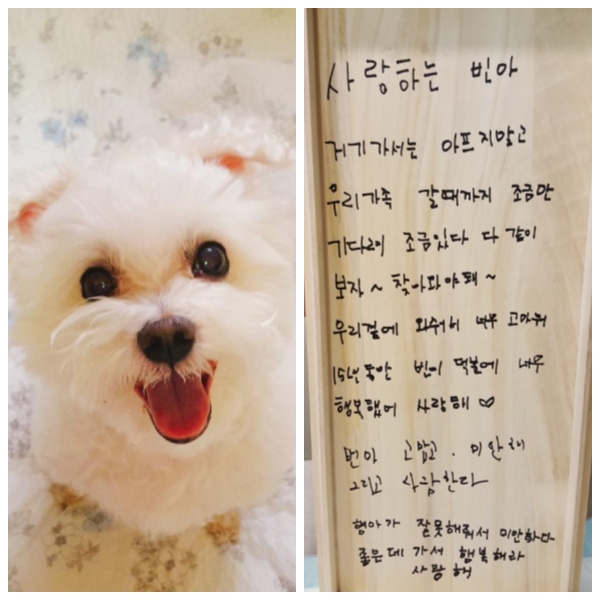 사랑하는 빈아
거기가서는 아프지말고
우리가족 갈때까지 조금만
기다려 조금있다 다 같이
보자~ 찾아와야돼~
우리곁에 와줘서 너무 고마워
15년동안 빈이 덕분에 너무
행복했어 사랑해 ♡
빈아 고맙고. 미안해
그리고 사랑한다
형아가 잘못해줘서 미안하다
좋은데 가서 행복해라
사랑해